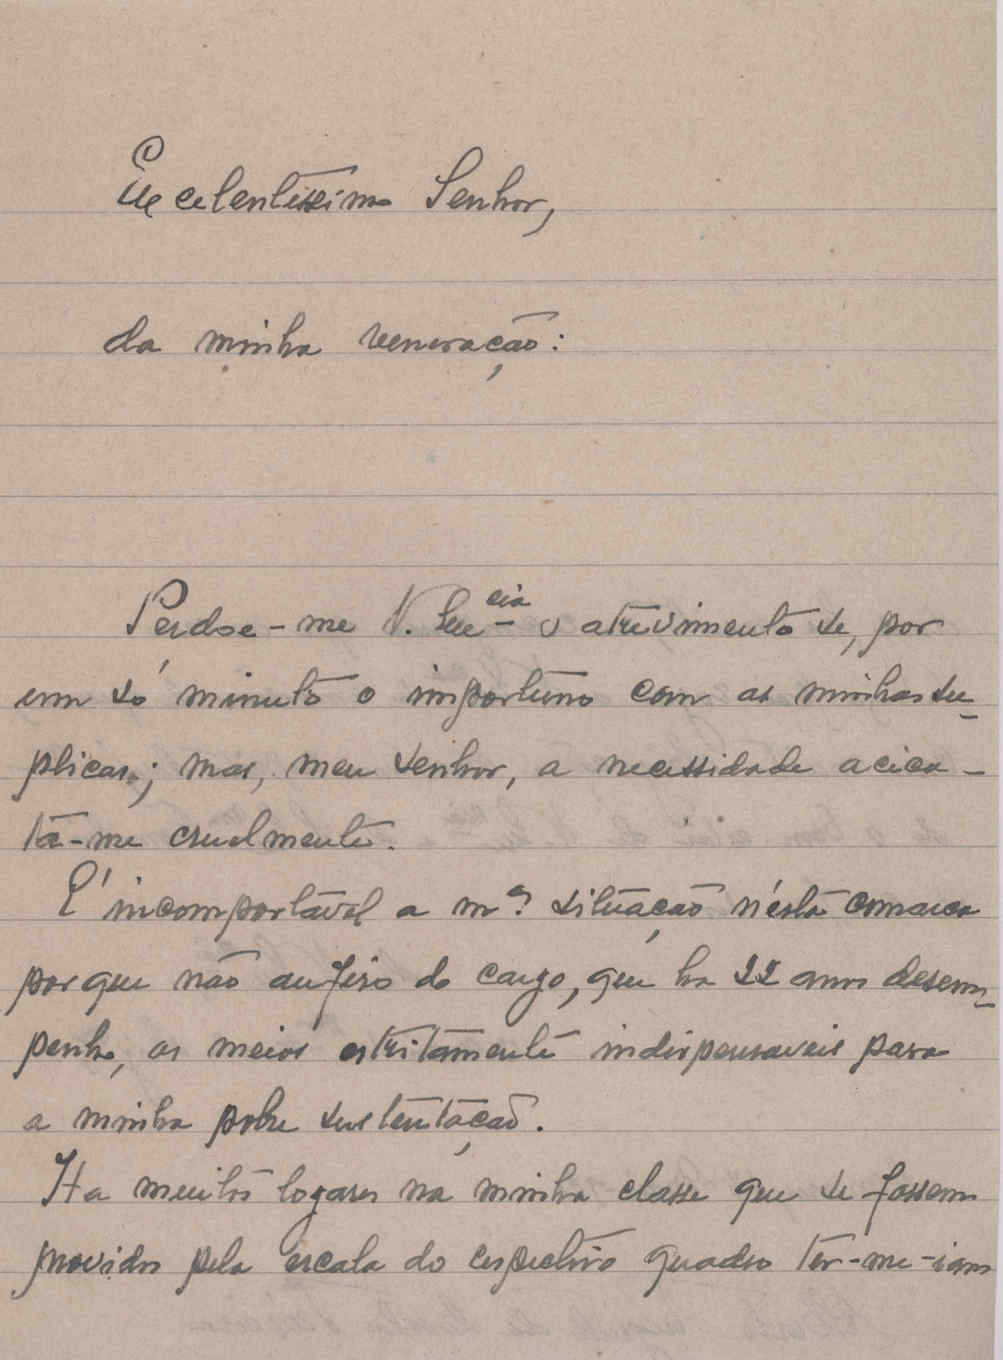 Excelentissimo Senhor,
da minha veneração:
Perdoe-me V. Excia o atrevimento de, por
um só minuto o importuno com as minhas su-
plicas; mas, meu senhor, a necessidade acica-
ta-me cruelmente.
É incomportavel a mª situação n'ésta comarca
porque não aufiro do cargo, que ha 22 anos desem-
penho, os meios estritamente indispensaveis para
a minha pobre sustentação.
Ha muitos logares na minha classe que se fossem
providos pela escala do respectivo quadro ter-me-iam